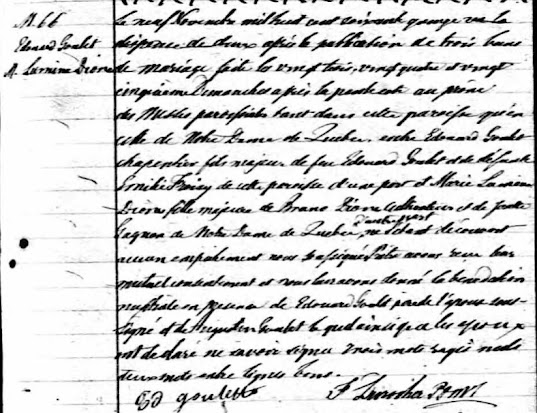 M. 66
Edouard Goulet
M. Lumina Dionne
Le neuf Novembre mil huit cent soixante quinze vu la
dispense de deux après la publication de trois bans
de mariage faite les vingt trois, vingt quatre et vingt
cinquième Dimanches après la pentecôte au prône
des Messes paroissiales tant dans cette paroisse qu'en
celle de Notre Dame de Quebec, entre Edouard Goulet
charpentier fils majeur de feu Edouard Goulet et de défunte
Emilie de cette paroisse d'une part et Marie Lumina
Dionne fille majeure de Bruno Dionne Cultivateur et de
Gagnon de Notre Dame de Quebec, d'autre part ne s'étant découvert
aucun empêchement nous soussigné Prêtre avons reçu leur
mutuel consentement et nous leur avons donné la bénédiction
nuptiale en présence de Edouard Goulet de l'époux sous-
signé et de Goulet lequel ainsi que les époux
ont déclaré ne savoir signer trois mots rayés nuls
deux mots entre lignes bons.
Ed goulette